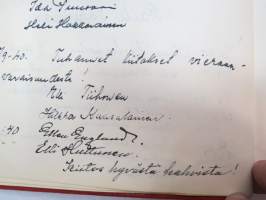 Ida Tursoori
Heli Hakkarainen
/9-40. Tuhannet kiitokset vieraan-
varaisuudesta!
Ada Tiihonen
Hilkka Kaasalainen
-40 Ellen Englund.
Elli Huttunen.
Kiitos hyvästä kahvista!